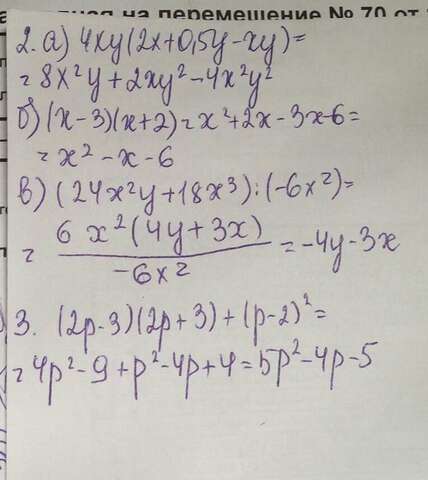 на перемещение № 70 от
2. а) 4xy(2x+0,5y-xy)=
= 8x²y+2xy²-4x²y²
б) (x-3)(x+2)=x²+2x-3x-6=
= x²-x-6
в) (24x²y+18x³):(-6x²)=
= 6x²(4y+3x)/-6x² = -4y-3x
3. (2p-3)(2p+3)+(p-2)²=
= 4p²-9+p²-4p+4=5p²-4p-5